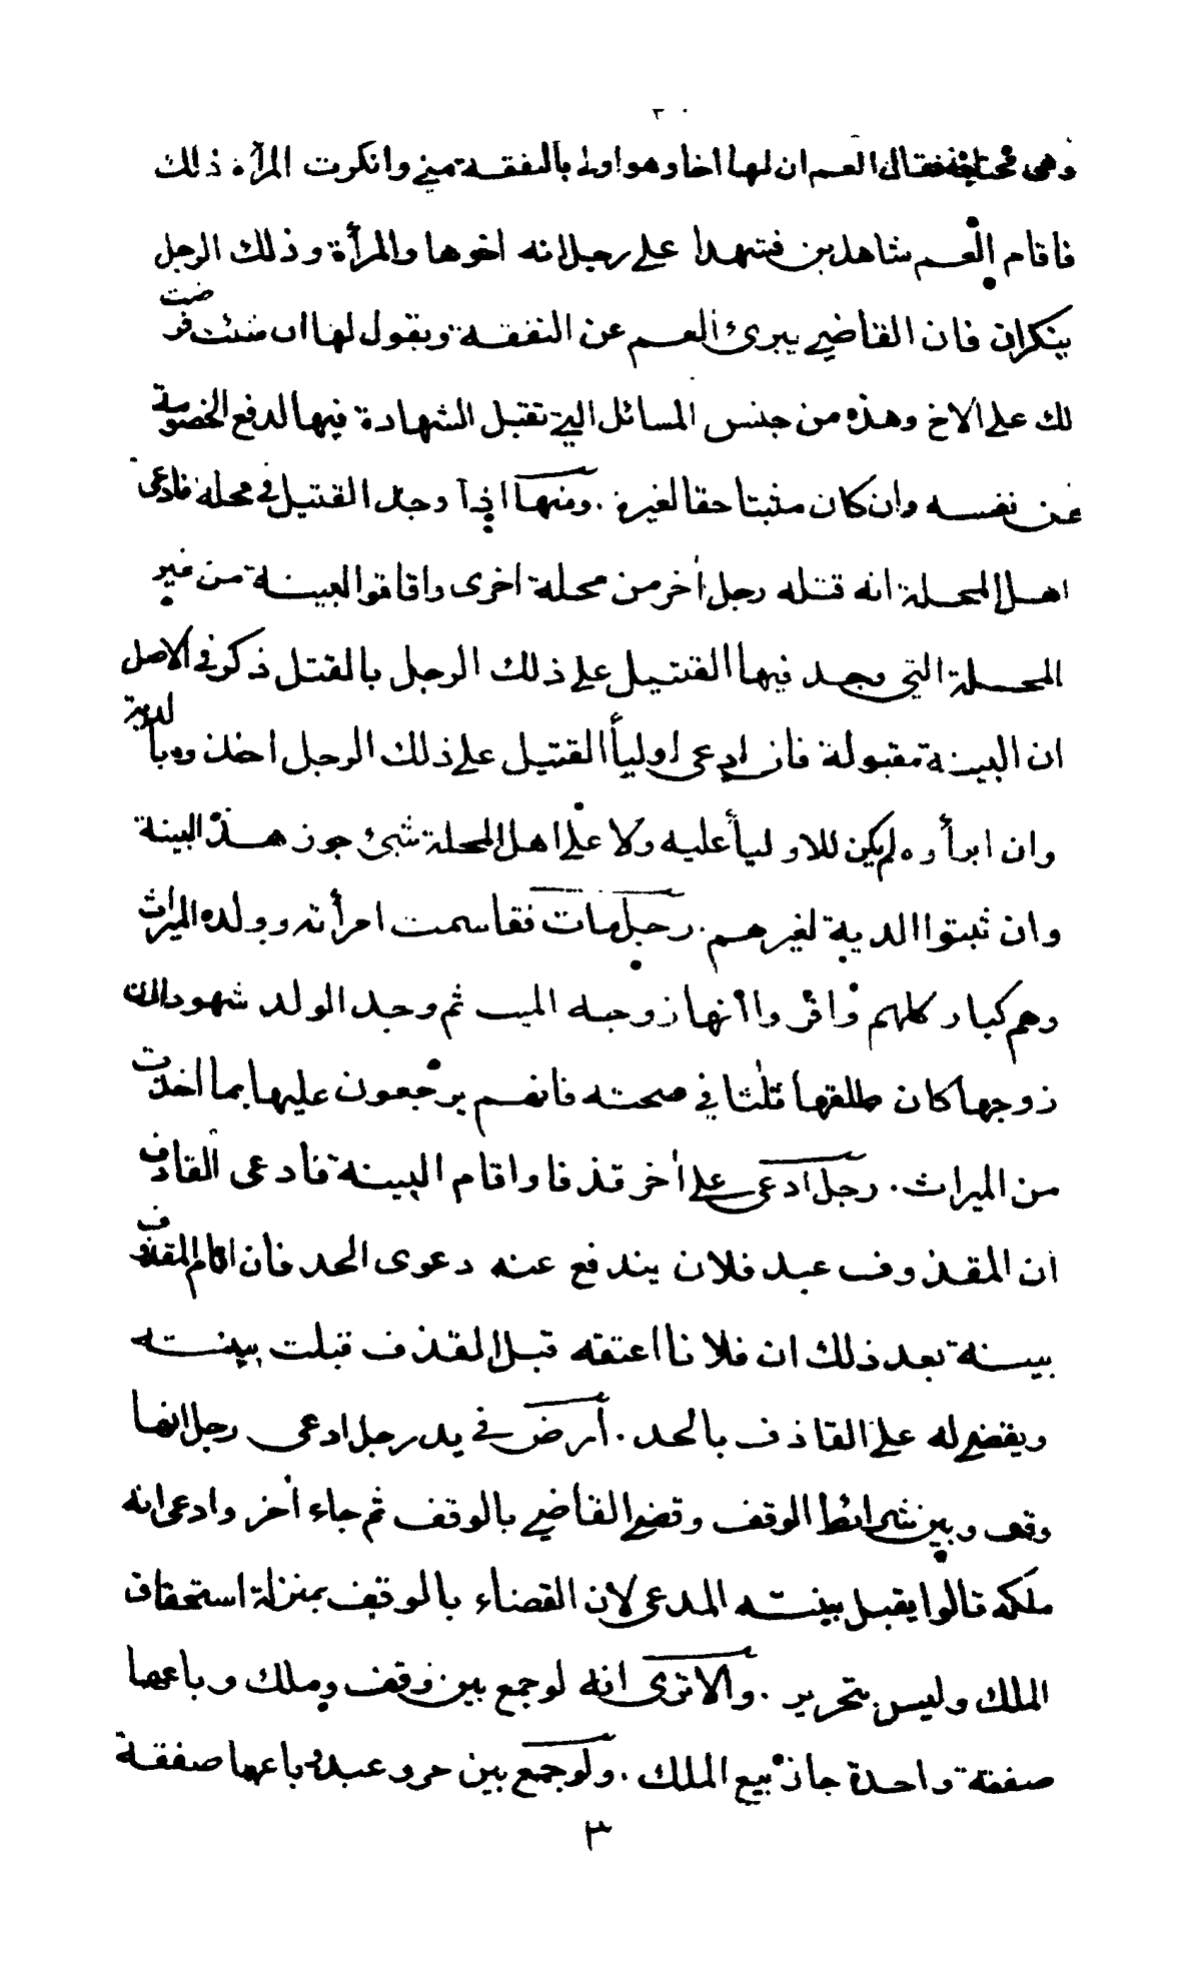 ٣٠
وهى محتاجة فقال العم ان لها اخا وهو اولى بالنفقة منى وانكرت المرأة ذلك
فاقام العم شاهدين فشهدا على رجل انه اخوها والمرأة وذلك الرجل
ينكران فان القاضى يبرئ العم عن النفقة ويقول لها ان شئت فرضت
لك على الاخ وهذه من جنس المسائل التى تقبل الشهادة فيها لدفع الخصومة
عن نفسه وان كان مثبتا حقا لغيره . ومنها اذا وجد القتيل فى محلة فادعى
اهل المحلة انه قتله رجل أخر من محلة اخرى واقاموا البينة من غير
المحلة التى وجد فيها القتيل على ذلك الرجل بالقتل ذكر فى الاصل
ان البينة مقبولة فان ادعى اولياأ القتيل على ذلك الرجل اخذوه بالدية
وان ابرأوه لم يكن للاولياأ عليه ولا على اهل المحلة شئ جوز هذه البينة
وان ثبتوا الدية لغيرهم . رجل مات فقاسمت امرأته وولده الميراث
وهم كبار كلهم واقروا انها زوجه الميت ثم وجد الولد شهودا ان
زوجها كان طلقها ثلثا فى صحته فانهم يرجعون عليها بما اخذت
من الميراث . رجل ادعى على أخر قذفا واقام البينة فادعى القاذف
ان المقذوف عبد فلان يندفع عنه دعوى الحد فأن اقام المقذوف
بينة بعد ذلك ان فلانا اعتقه قبل القذف قبلت بينته
ويقضى له على القاذف بالحد . أرض فى يد رجل ادعى رجل انها
وقف وبين شرائط الوقف وقضى القاضى بالوقف ثم جاء أخر وادعى انه
ملكه قالوا يقبل بينته المدعى لان القضاء بالوقف بمنزلة استحقاق
الملك وليس بتحرير . والا ترى انه لو جمع بين وقف وملك وباعها
صفقة واحدة جاز بيع الملك . ولو جمع بين حر وعبد وباعهما صفقة
٣